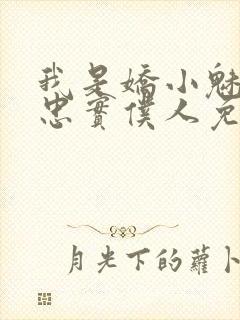 我是嬌小魅
忠實僕人免
月光下的蘿卜